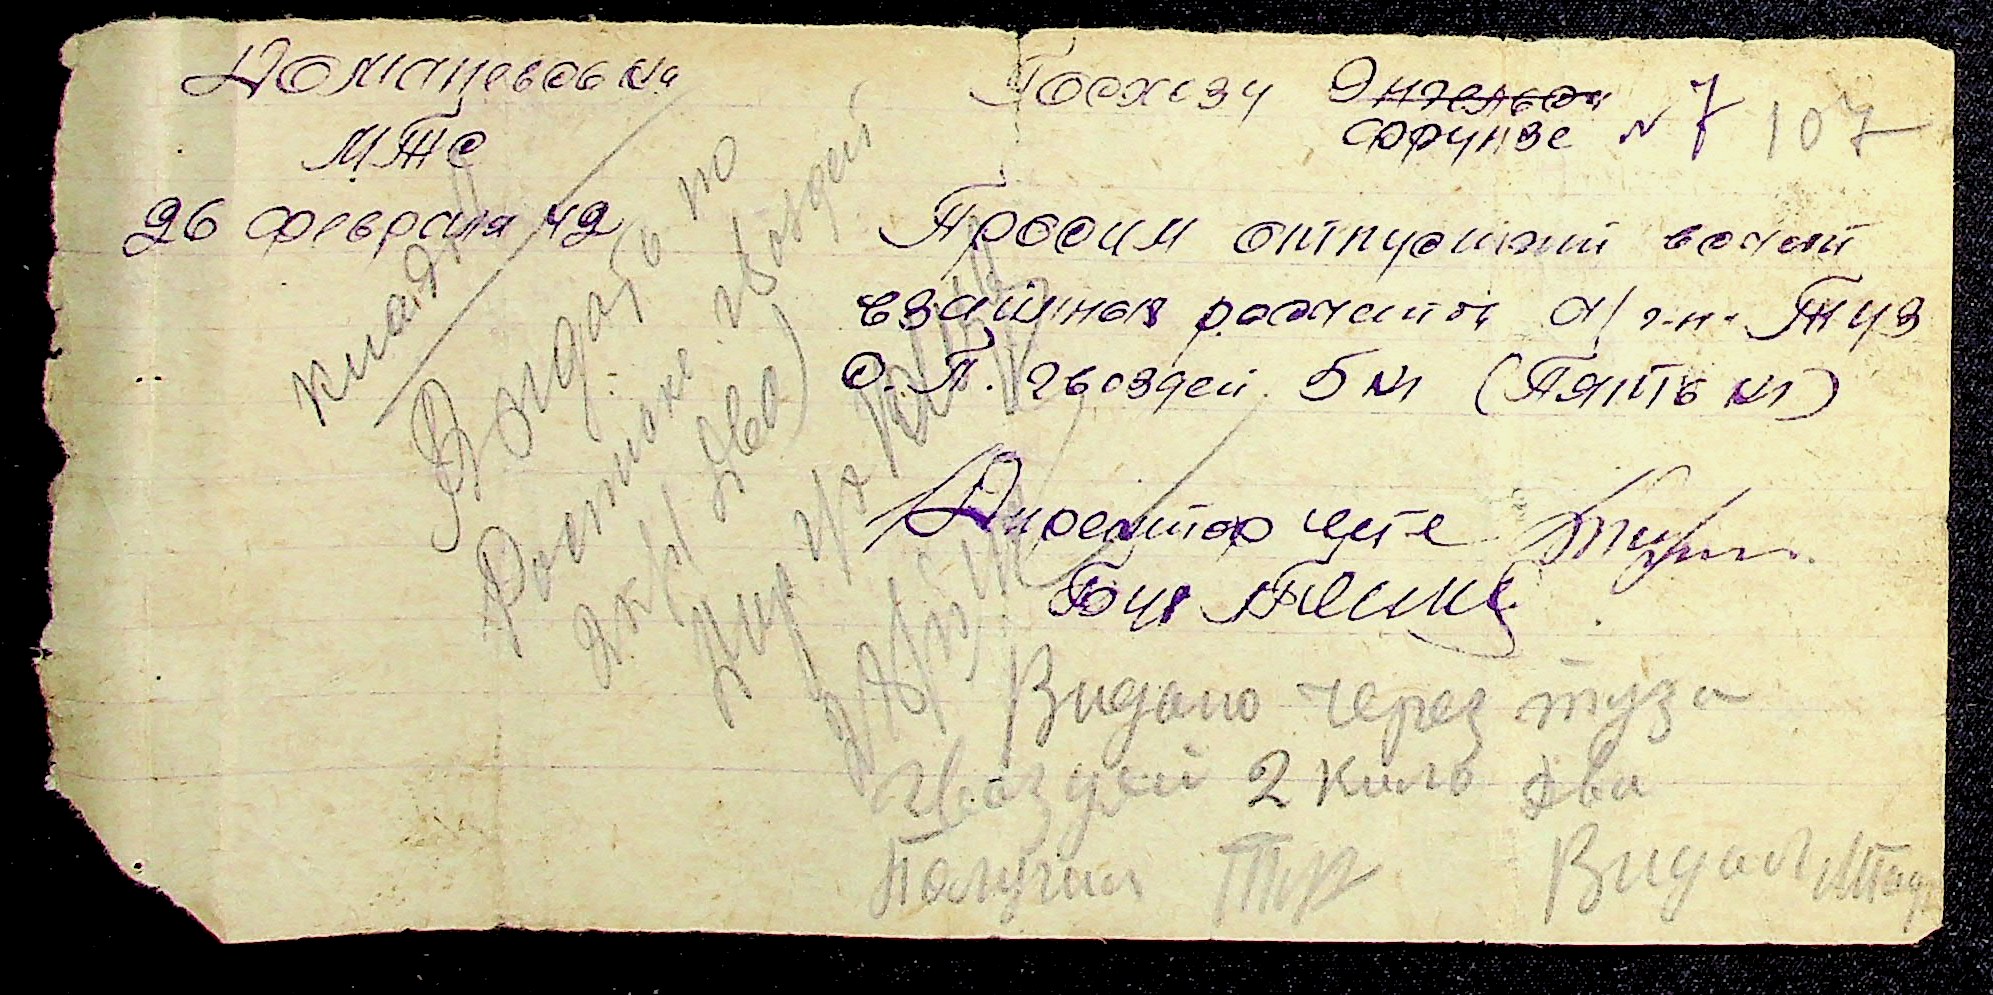 Доманцевская
МТС
26 февраля 42
Госхозу Энгельса
Фрунзе № 7 107
Просим отпустить в счет
взаимных расчетов ч/г-на Туз
С. П. гвоздей 5 кг (Пять кг)
Директор мтс
Бух
кладов
Выдать по
Расписке гвоздей
2 кг (два)
Дир г/х
28/II 42
Видано через туза
гвоздей 2 кило два
Получил Туз
Видал